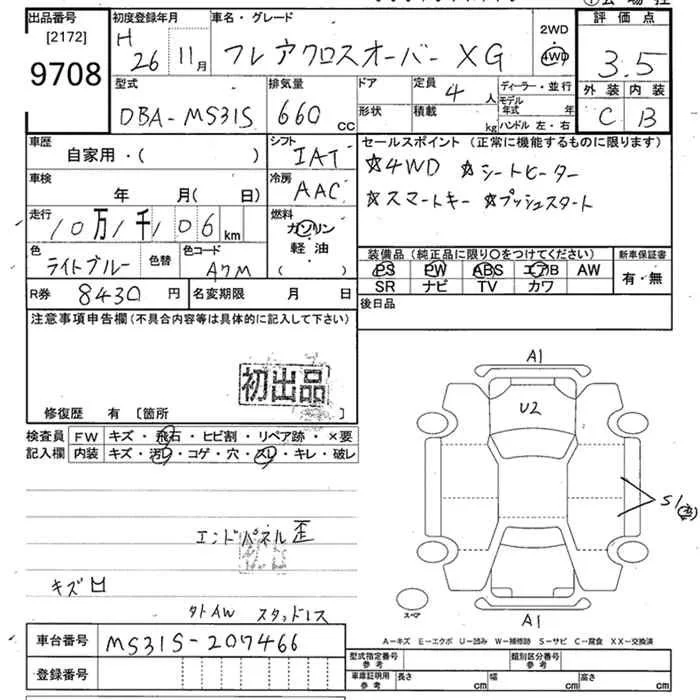 出品番号 初度登録年月 車名・グレード 2WD 評価点
[2172] H 26 11月 フレアクロスオーバー XG 4WD 3.5
9708
型式 排気量 ドア 定員 4 人 ディーラー・並行 外装 内装
DBA-MS31S 660 cc 形状 積載 kg モデル年式 年 C B
ハンドル 左・右
車歴 シフト セールスポイント (正常に機能するものに限ります)
自家用・( ) IAT ☆4WD ☆シートヒーター
車検 冷房 ☆スマートキー ☆プッシュスタート
年 月(日) AAC
走行 10万1千106km 燃料 ガソリン・軽油 ( )
装備品 (純正品に限り○をつけてください) 新車保証書
色 色替 色コード PS PW ABS エアB AW 有・無
ライトブルー A7M SR ナビ TV カワ
R券 8430円 名変期限 月 日 後日品
注意事項申告欄 (不具合内容等は具体的に記入して下さい)
初出品
修復歴 有 [箇所 ]
検査員記入欄 FW キズ・飛石・ヒビ割・リペア跡・×要
内装 キズ・汚レ・コゲ・穴・スレ・キレ・破レ
A1
U2
S1
エンドパネル歪
キズ凹
タトAW スタッドレス
スペア
A1
A-キズ E-エクボ U-凹み W-補修跡 S-サビ C-腐食 XX-交換済
車台番号 MS31S-207466
型式指定番号 参考 類別区分番号 参考
登録番号 車庫証明用 参考 長さ cm 幅 cm 高さ cm